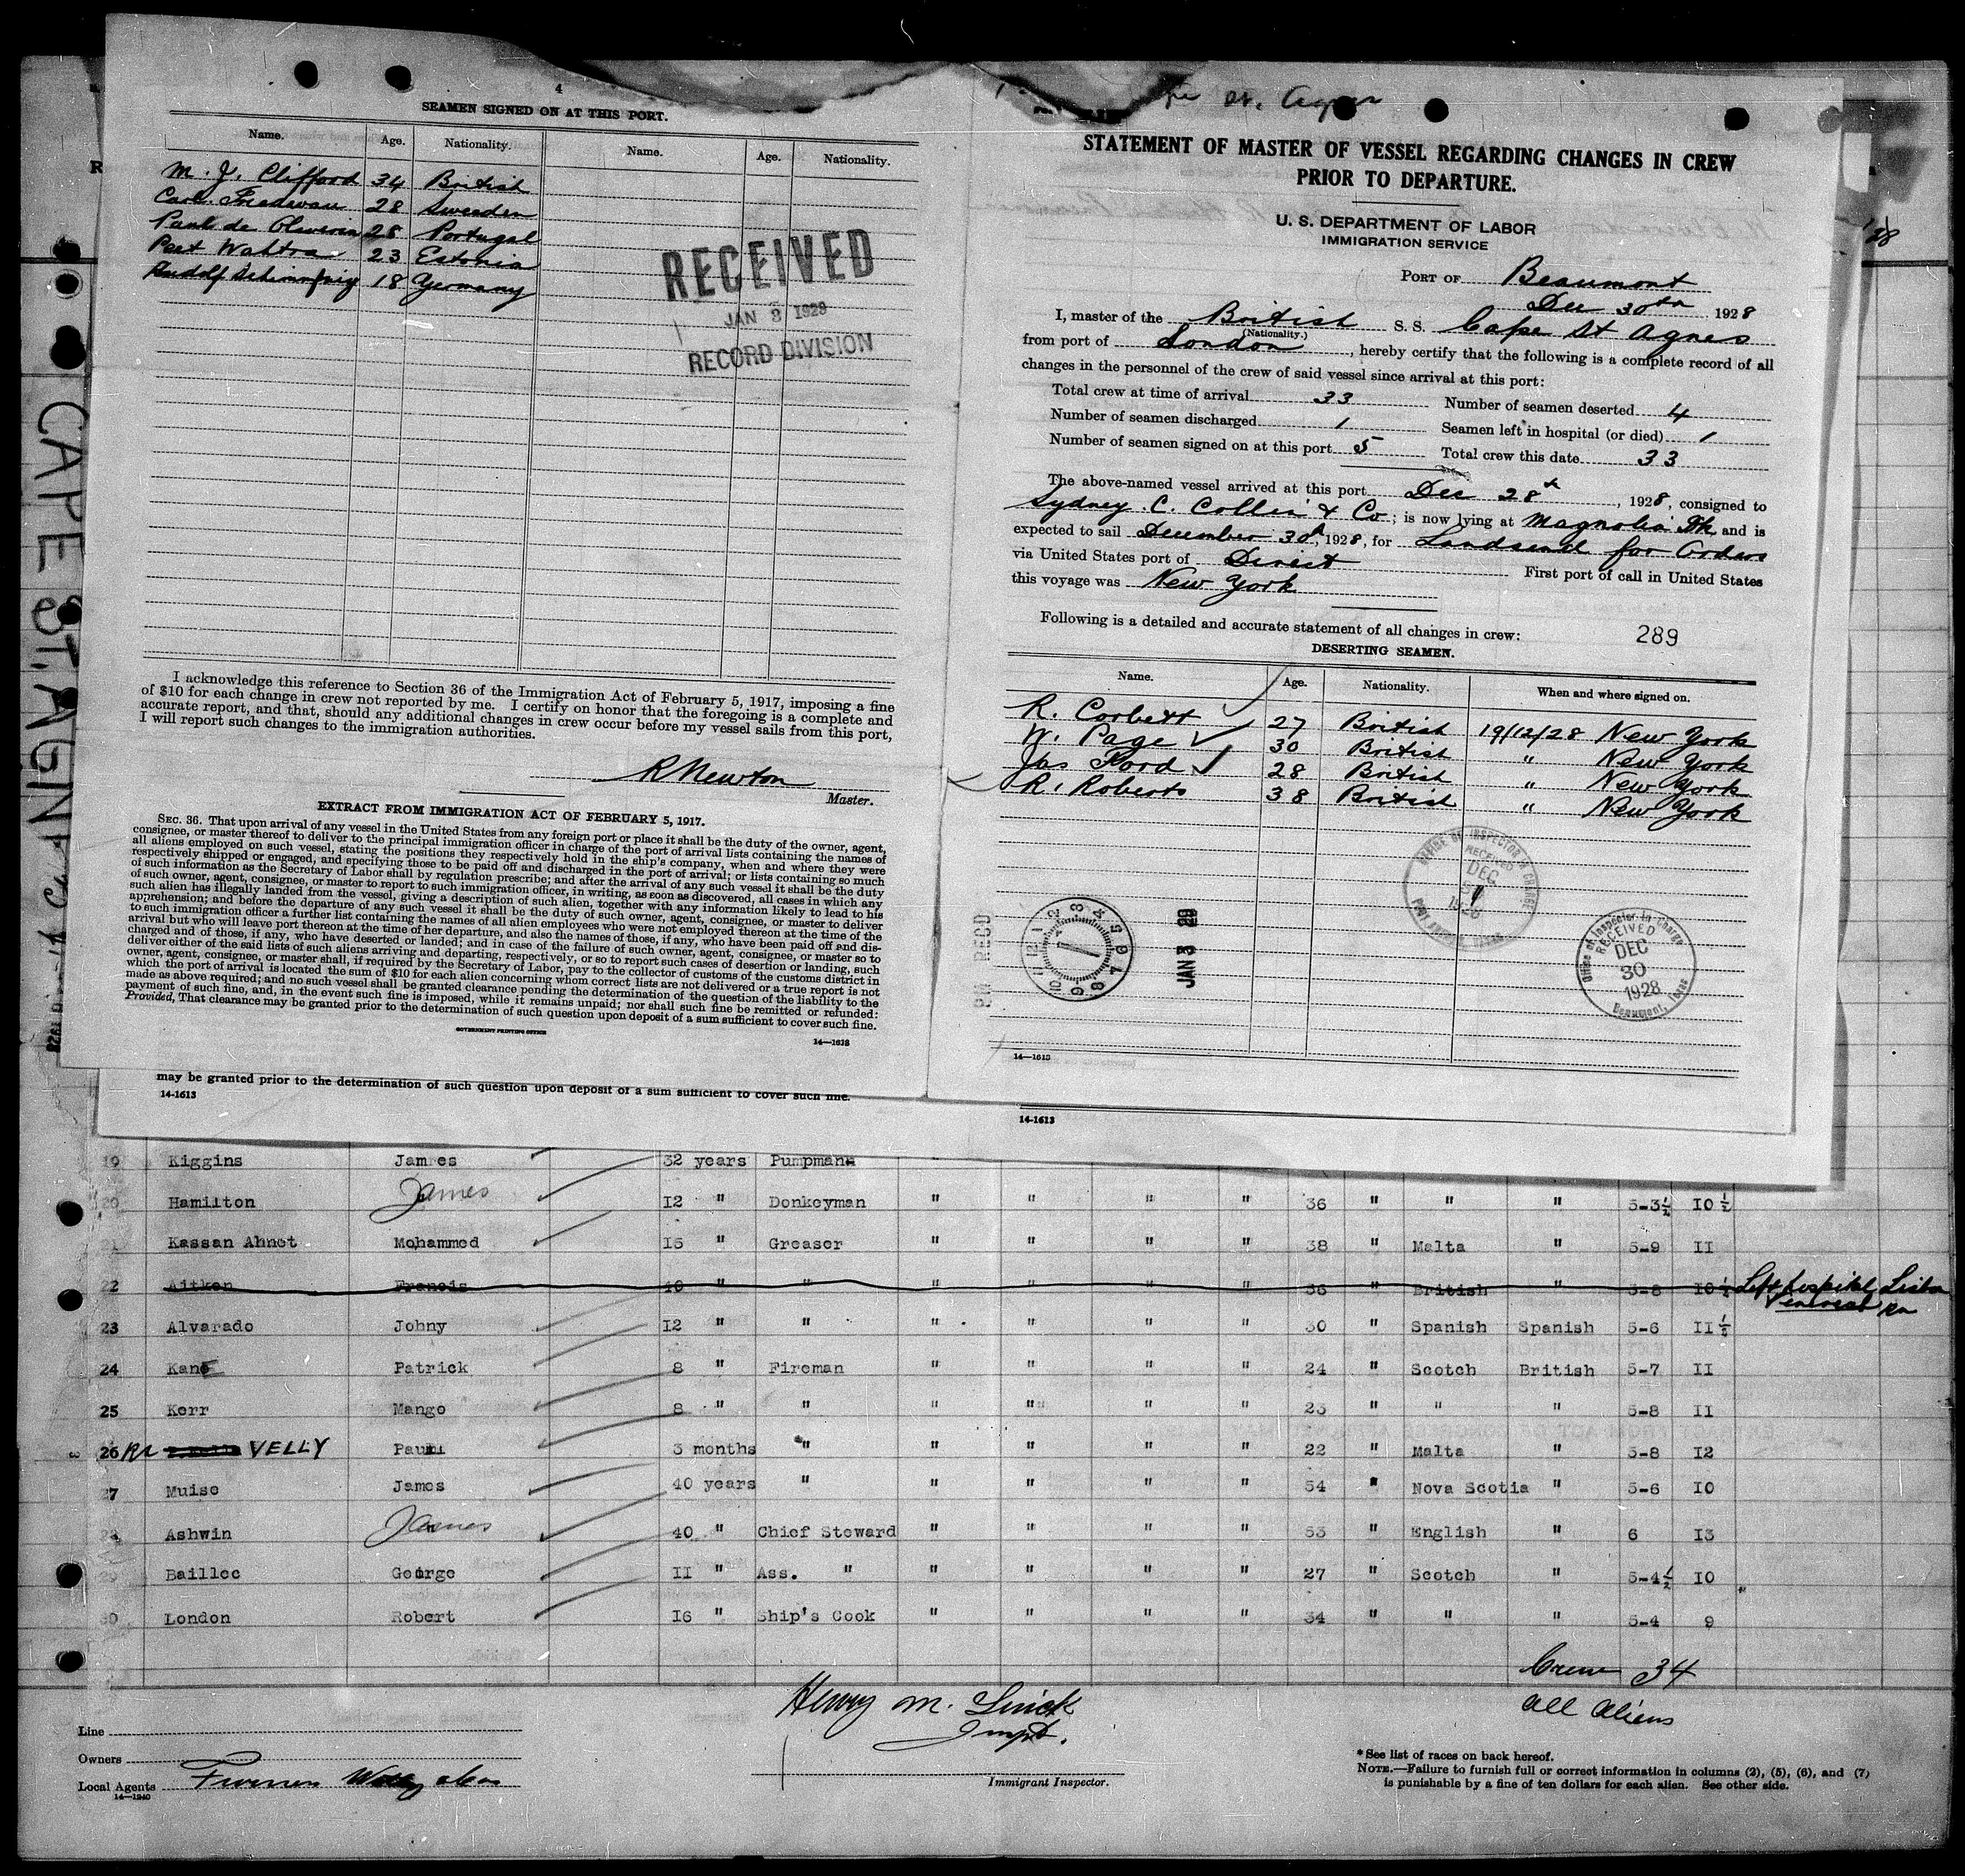 4
SEAMEN SIGNED ON AT THIS PORT.
Name. Age. Nationality. Name. Age. Nationality.
M. J. Clifford 34 British
Carl 28 Sweeden
Paul de Oliveria 28 Portugal
Peet Wahtra 23 Estonia
Rudolf 18 Germany
RECEIVED
JAN 3 1929
RECORD DIVISION
I acknowledge this reference to Section 36 of the Immigration Act of February 5, 1917, imposing a fine
of $10 for each change in crew not reported by me. I certify on honor that the foregoing is a complete and
accurate report, and that, should any additional changes in crew occur before my vessel sails from this port,
I will report such changes to the immigration authorities.
R Newton
Master.
EXTRACT FROM IMMIGRATION ACT OF FEBRUARY 5, 1917.
SEC. 36. That upon arrival of any vessel in the United States from any foreign port or place it shall be the duty of the owner, agent,
consignee, or master thereof to deliver to the principal immigration officer in charge of the port of arrival lists containing the names of
all aliens employed on such vessel, stating the positions they respectively hold in the ship's company, when and where they were
respectively shipped or engaged, and specifying those to be paid off and discharged in the port of arrival; or lists containing so much
of such information as the Secretary of Labor shall by regulation prescribe; and after the arrival of any such vessel it shall be the duty
of such owner, agent, consignee, or master to report to such immigration officer, in writing, as soon as discovered, all cases in which any
such alien has illegally landed from the vessel, giving a description of such alien, together with any information likely to lead to his
apprehension; and before the departure of any such vessel it shall be the duty of such owner, agent, consignee, or master to deliver
to such immigration officer a further list containing the names of all alien employees who were not employed thereon at the time of the
arrival but who will leave port thereon at the time of her departure, and also the names of those, if any, who have been paid off and dis-
charged and of those, if any, who have deserted or landed; and in case of the failure of such owner, agent, consignee, or master so to
deliver either of the said lists of such aliens arriving and departing, respectively, or so to report such cases of desertion or landing, such
owner, agent, consignee, or master shall, if required by the Secretary of Labor, pay to the collector of customs of the customs district in
which the port of arrival is located the sum of $10 for each alien concerning whom correct lists are not delivered or a true report is not
made as above required; and no such vessel shall be granted clearance pending the determination of the question of the liability to the
payment of such fine, and, in the event such fine is imposed, while it remains unpaid; nor shall such fine be remitted or refunded:
Provided, That clearance may be granted prior to the determination of such question upon deposit of a sum sufficient to cover such fine.
GOVERNMENT PRINTING OFFICE
14—1613
may be granted prior to the determination of such question upon deposit of a sum sufficient to cover such fine.
14-1613
CAPE ST. AGNES
STATEMENT OF MASTER OF VESSEL REGARDING CHANGES IN CREW
PRIOR TO DEPARTURE.
U. S. DEPARTMENT OF LABOR
IMMIGRATION SERVICE
PORT OF Beaumont
Dec 30th 1928
I, master of the British S. S. Cape St Agnes
(Nationality.)
from port of London, hereby certify that the following is a complete record of all
changes in the personnel of the crew of said vessel since arrival at this port:
Total crew at time of arrival 33 Number of seamen deserted 4
Number of seamen discharged 1 Seamen left in hospital (or died) 1
Number of seamen signed on at this port 5 Total crew this date 33
The above-named vessel arrived at this port Dec 28th, 1928, consigned to
Sydney. C. Collin & Co; is now lying at Magnolia and is
expected to sail December 30th, 1928, for Landsend for Orders
via United States port of Direct First port of call in United States
this voyage was New York
Following is a detailed and accurate statement of all changes in crew: 289
DESERTING SEAMEN.
Name. Age. Nationality. When and where signed on.
R. Corbett 27 British 19/12/28 New York
W. Page 30 British " New York
Jas Ford 28 British " New York
R. Roberts 38 British " New York
OFFICE OF INSPECTOR IN CHARGE
RECEIVED
DEC
Office of Inspector in Charge
RECEIVED
DEC
30
1928
Beaumont, Texas
P.M. RECD
JAN 3 29
14—1613
14-1613
19 Kiggins James 32 years Pumpman
20 Hamilton James 12 " Donkeyman " " " " 36 " " " 5-3½ 10½
21 Kassan Ahnet Mohammed 15 " Greaser " " " " 38 " Malta " 5-9 11
22 Aitken Francis 40 " " " " " " 36 " British " 5-8 10½ Left hospital
23 Alvarado Johny 12 " " " " " " 30 " Spanish Spanish 5-6 11½
24 Kane Patrick 8 " Fireman " " " " 24 " Scotch British 5-7 11
25 Kerr Mango 8 " " " " " " 23 " " " 5-8 11
26 VELLY Paul 3 months " " " " " 22 " Malta " 5-8 12
27 Muise James 40 years " " " " " 54 " Nova Scotia " 5-6 10
28 Ashwin James 40 " Chief Steward " " " " 53 " English " 6 13
29 Baillee George 11 " Ass. " " " " " 27 " Scotch " 5-4½ 10
30 London Robert 16 " Ship's Cook " " " " 34 " " " 5-4 9
Crew 34
All Aliens
Henry M.
Line
Owners
Local Agents
14—1240
Immigrant Inspector.
*See list of races on back hereof.
NOTE.—Failure to furnish full or correct information in columns (2), (5), (6), and (7)
is punishable by a fine of ten dollars for each alien. See other side.